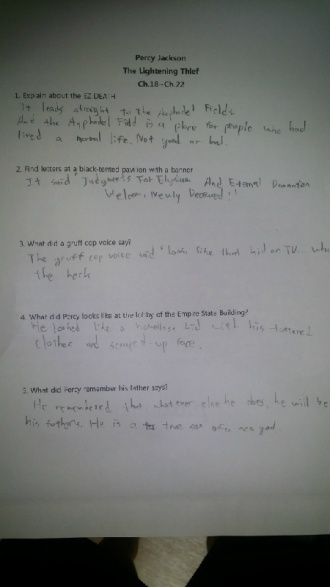 Percy Jackson
The Lightening Thief
Ch.18~Ch.22
1. Explain about the EZ DEATH.
It leads straight to the Asphodel Fields
And the Asphodel Field is a place for people who had
lived a normal life. Not good or bad.
2. Find letters at a black-tented pavilion with a banner
It said Judgments For Elysium And Eternal Damnation
Welcome, Newly Deceased!!
3. What did a gruff cop voice say?
The gruff cop voice said "looks like that kid on TV... who
the heck
4. What did Percy looks like at the lobby of the Empire State Building?
He looked like a homeless kid with his tattered
clothes and scraped-up face.
5. What did Percy remember his father says?
He remembered that whatever else he does, he will be
his father's. He is a true son of sea god.